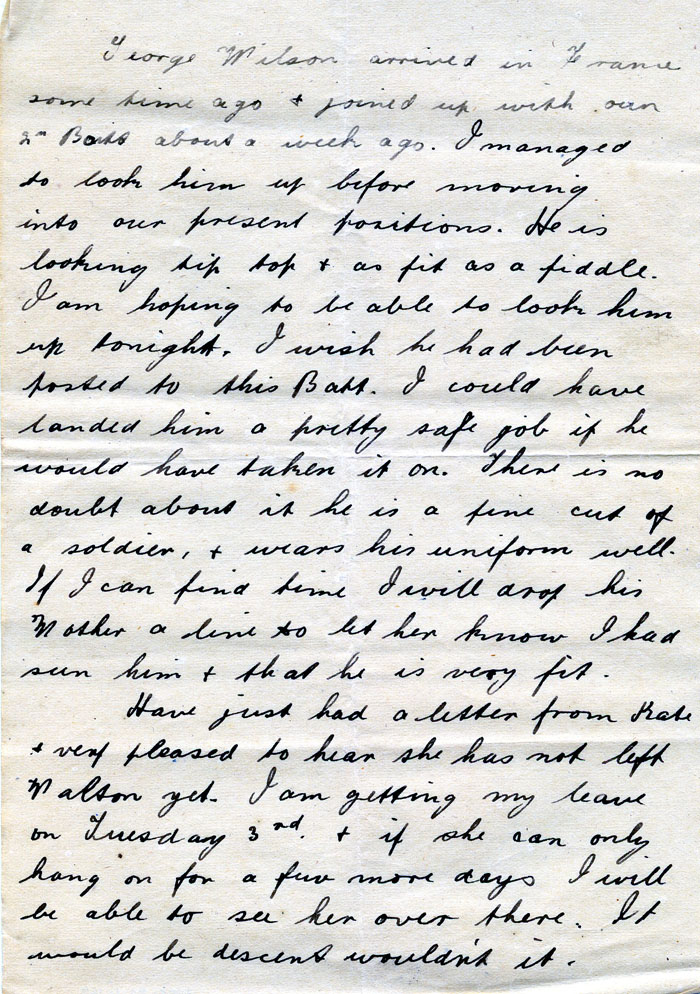 George Wilson arrived in France
some time ago & joined up with our
2nd Batt about a week ago. I managed
to look him up before moving
into our present positions. He is
looking tip top & as fit as a fiddle.
I am hoping to be able to look him
up tonight. I wish he had been
posted to this Batt. I could have
landed him a pretty safe job if he
would have taken it on. There is no
doubt about it he is a fine cut of
a soldier, & wears his uniform well.
If I can find time I will drop his
Mother a line to let her know I had
seen him & that he is very fit.
Have just had a letter from Kate
& very pleased to hear she has not left
Walton yet. I am getting my leave
on Tuesday 3rd. & if she can only
hang on for a few more days I will
be able to see her over there. It
would be descent wouldn't it.